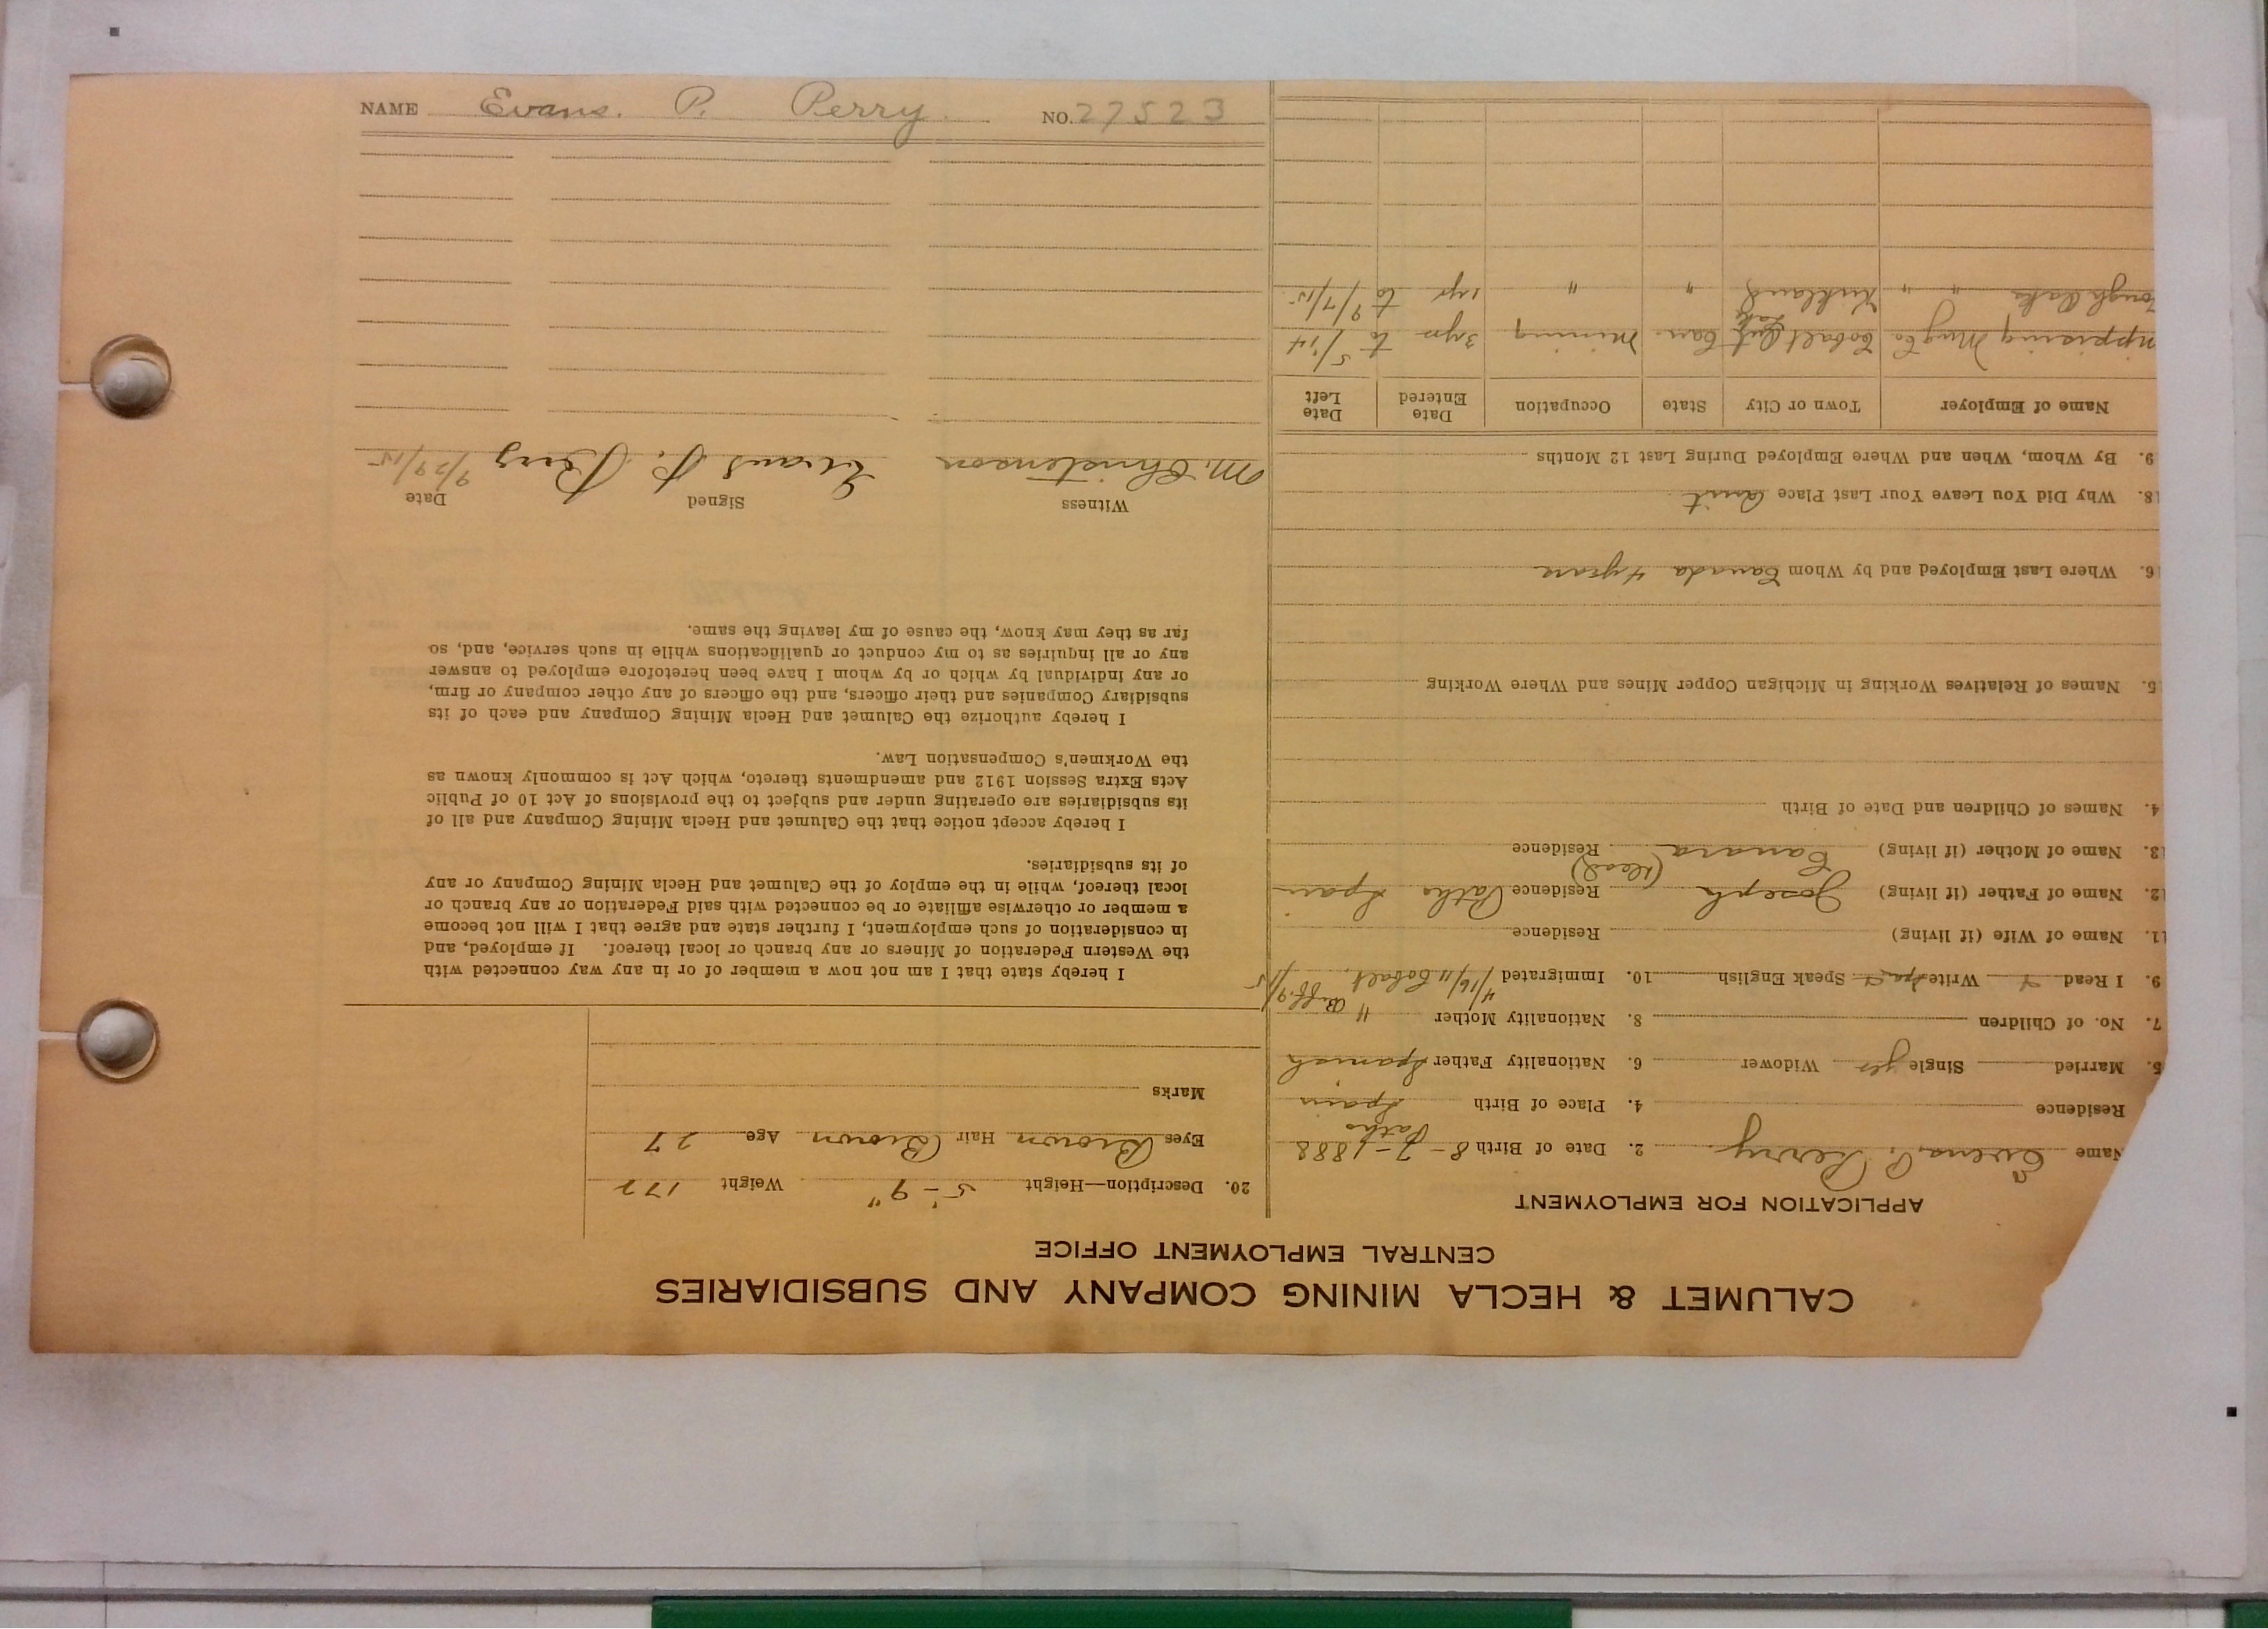 NAME Evans. P. Perry. NO. 27523
CALUMET & HECLA MINING COMPANY AND SUBSIDIARIES
CENTRAL EMPLOYMENT OFFICE
APPLICATION FOR EMPLOYMENT
Name Evens. P. Perry 2. Date of Birth 8-7-1888
Residence 4. Place of Birth Spain
5. Married Single yes Widower 6. Nationality Father Spanish
7. No. of Children 8. Nationality Mother "
9. I Read Write Speak English 10. Immigrated 4/16/11 Cobalt.
11. Name of Wife (if living) Residence
12. Name of Father (if living) Joseph (dead) Residence Spain
13. Name of Mother (if living) Residence
4. Names of Children and Date of Birth
5. Names of Relatives Working in Michigan Copper Mines and Where Working
16. Where Last Employed and by Whom Canada 4 years
18. Why Did You Leave Your Last Place Quit
9. By Whom, When and Where Employed During Last 12 Months
Name of Employer Town or City State Occupation Date Entered Date Left
Mng Co Cobalt Can. Mining 3 yrs to 5/14
Tough Oaks " " Kirkland Lake " " 1 yr to 9/7/15
20. Description—Height 5'-9" Weight 177
Eyes Brown Hair Brown Age 27
Marks
I hereby state that I am not now a member of or in any way connected with
the Western Federation of Miners or any branch or local thereof. If employed, and
in consideration of such employment, I further state and agree that I will not become
a member or otherwise affiliate or be connected with said Federation or any branch or
local thereof, while in the employ of the Calumet and Hecla Mining Company or any
of its subsidiaries.
I hereby accept notice that the Calumet and Hecla Mining Company and all of
its subsidiaries are operating under and subject to the provisions of Act 10 of Public
Acts Extra Session 1912 and amendments thereto, which Act is commonly known as
the Workmen's Compensation Law.
I hereby authorize the Calumet and Hecla Mining Company and each of its
subsidiary Companies and their officers, and the officers of any other company or firm,
or any individual by which or by whom I have been heretofore employed to answer
any or all inquiries as to my conduct or qualifications while in such service, and, so
far as they may know, the cause of my leaving the same.
Witness Signed Date
M. Christenson Evans P. Perry 9/29/15